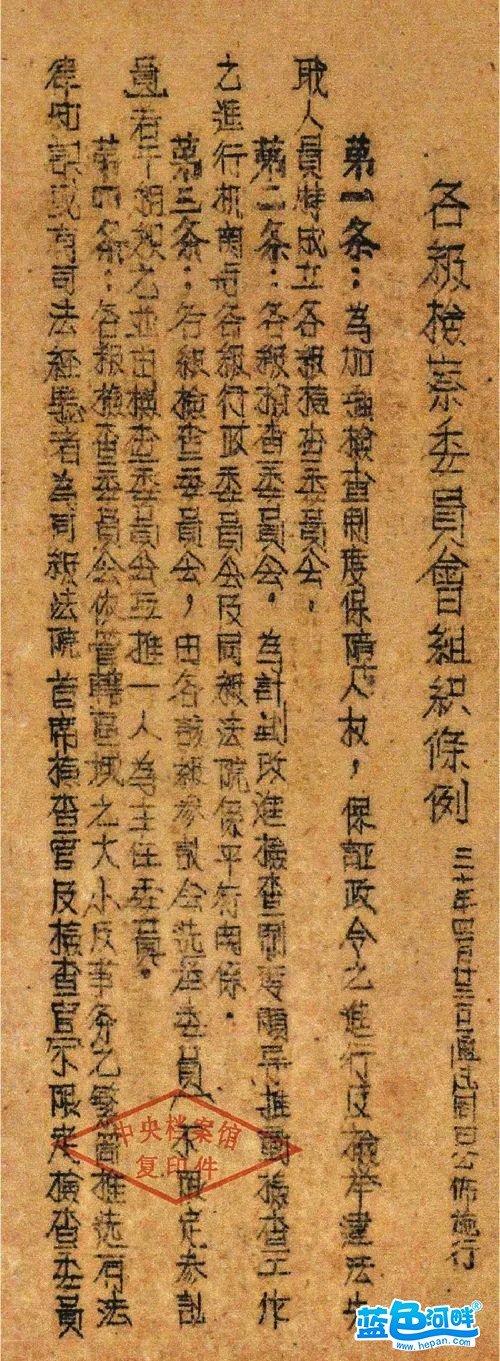 各級檢察委員會組織條例
三十年四月廿三日通过同日公佈施行
第一条：為加强檢查制度保障人权，保証政令之進行及檢举違法失
职人員特成立各級檢查委員会，
第二条：各級檢查委員会，為計劃改進檢查制度領导推動檢查工作
之進行机関与各級行政委員会及同級法院係平行関係．
第三条：各級檢查委員会，由各該級参議会选举委員（不限定参議
員）若干組織之並由檢查委員会互推一人為主任委員．
第四条：各級檢查委員会依管轄區域之大小及事务之繁簡推选有法
律知識或有司法經驗者為同級法院首席檢查官及檢查官不限定檢查委員
中央档案馆
复印件
蓝色河畔
www.hepan.com